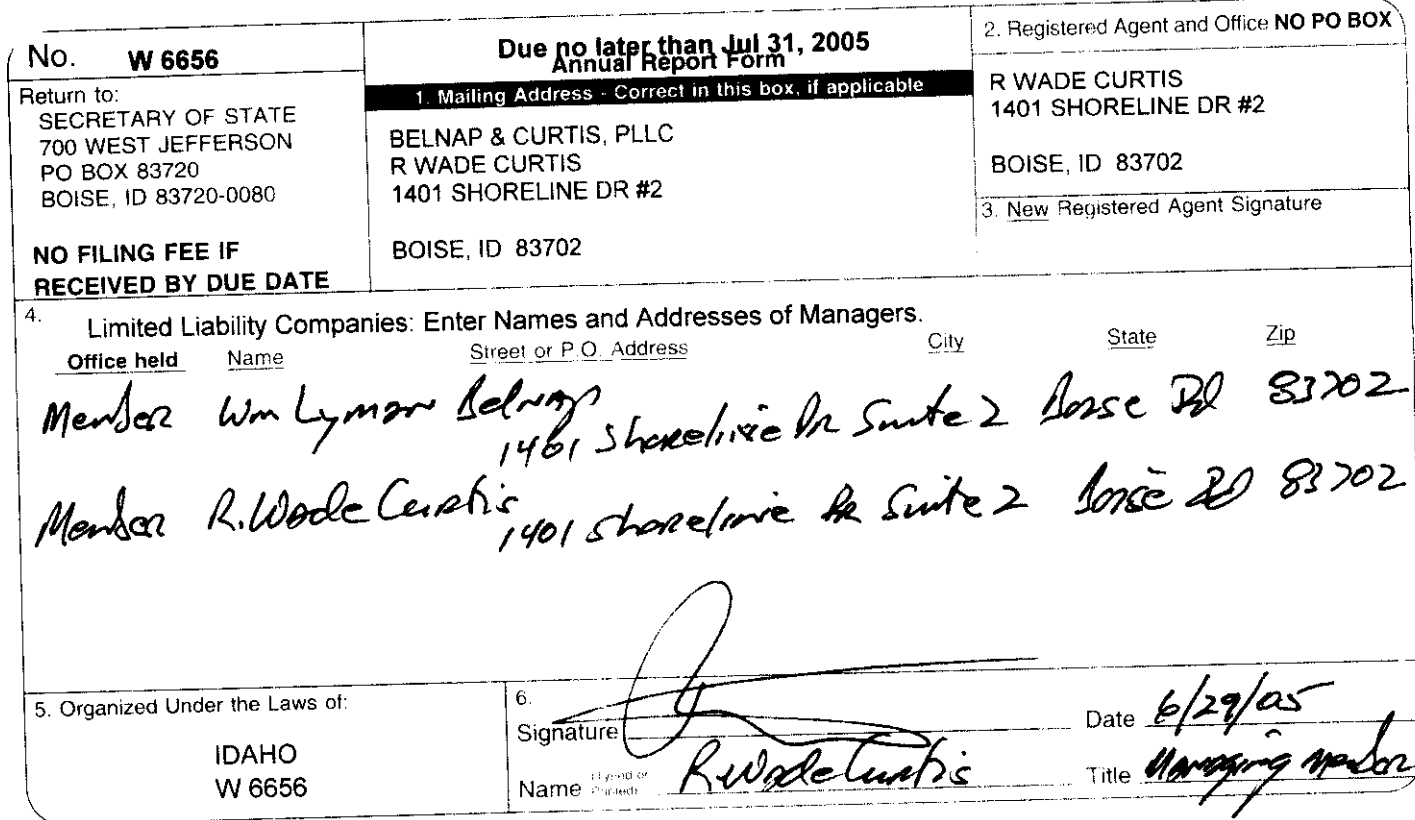 No. W 6656
Return to:
SECRETARY OF STATE
700 WEST JEFFERSON
PO BOX 83720
BOISE, ID 83720-0080
NO FILING FEE IF
RECEIVED BY DUE DATE
Due no later than Jul 31, 2005
Annual Report Form
1. Mailing Address - Correct in this box, if applicable
BELNAP & CURTIS, PLLC
R WADE CURTIS
1401 SHORELINE DR #2
BOISE, ID 83702
2. Registered Agent and Office NO PO BOX
R WADE CURTIS
1401 SHORELINE DR #2
BOISE, ID 83702
3. New Registered Agent Signature
4. Limited Liability Companies: Enter Names and Addresses of Managers.
Office held Name Street or P.O. Address City State Zip
Member Wm Lyman Belnap 1401 Shoreline Dr Suite 2 Boise ID 83702
Member R. Wade Curtis 1401 Shoreline Dr Suite 2 Boise ID 83702
5. Organized Under the Laws of:
IDAHO
W 6656
6.
Signature
Date 6/29/05
Name (Typed or Printed) R Wade Curtis
Title Managing Member